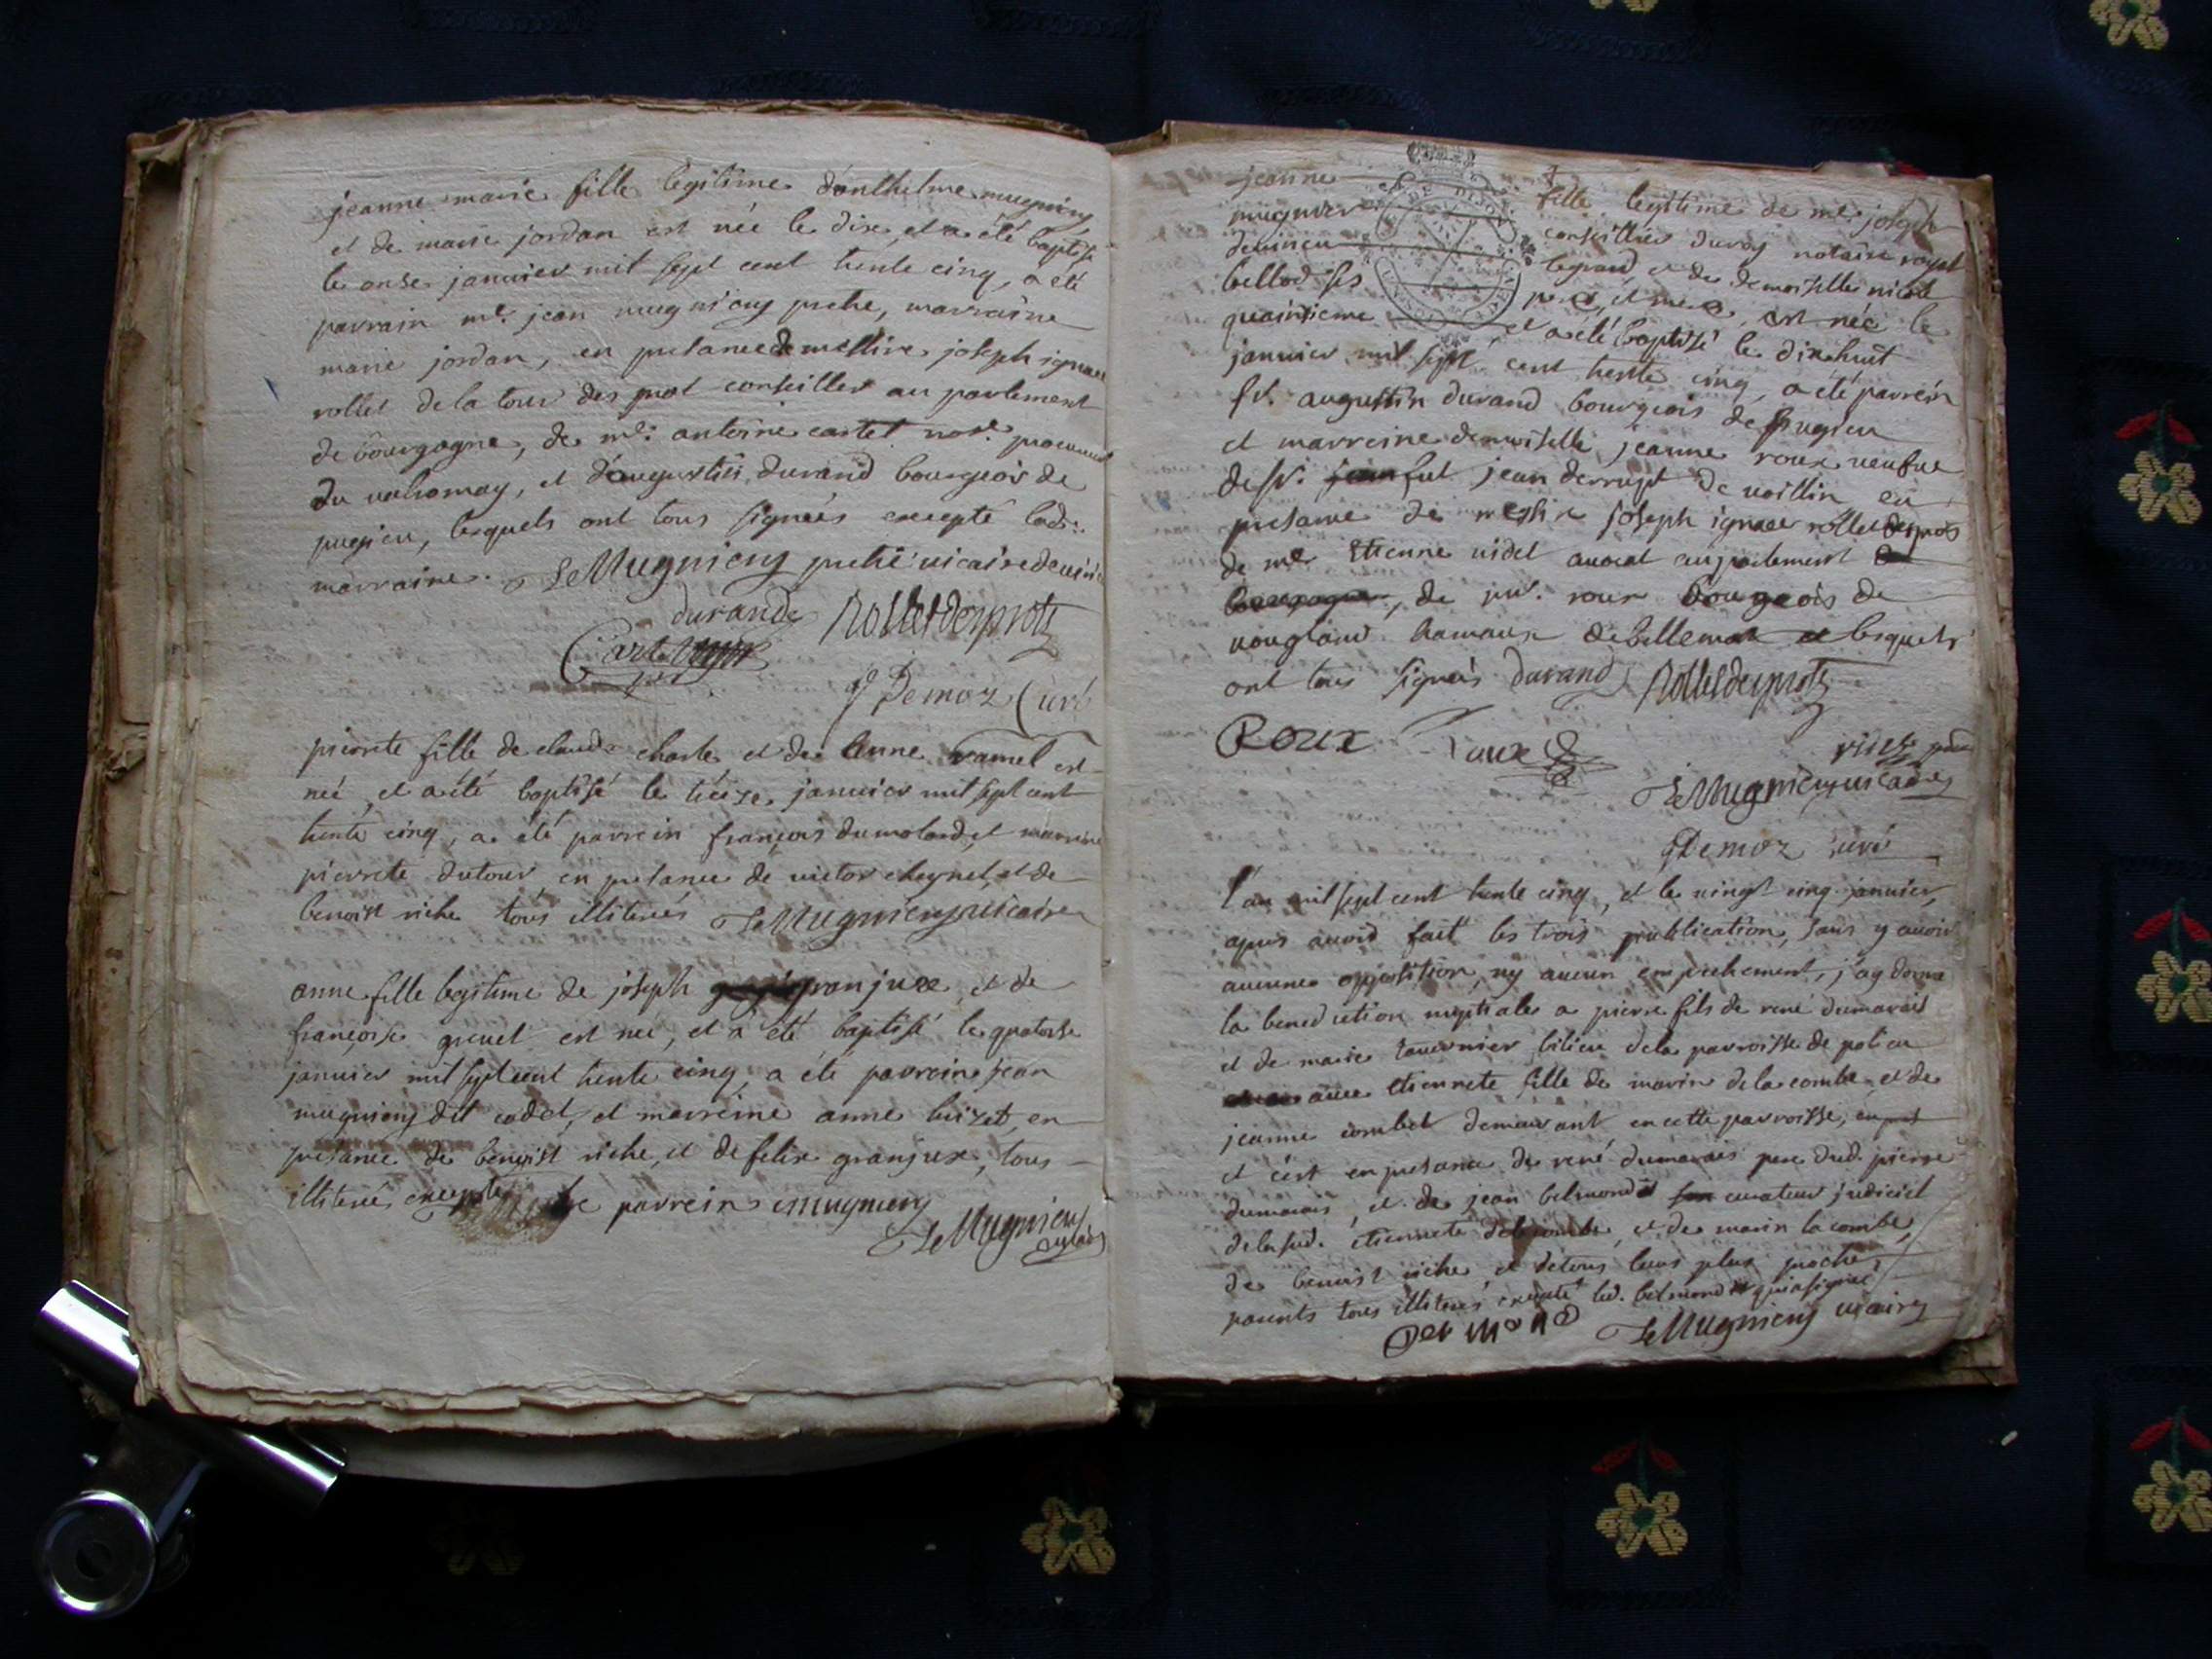 jeanne marie fille legitime d'anthelme mugniery
et de marie jordan est née le dix, et a été baptisé
le onse janvier mil sept cent trente cinq, a été
parrain mre. jean mugniery pretre, marraine
marie jordan, en presance de messire joseph ignace
rollet de la tour des prot conseiller au parlement
de bourgogne, de me. antoine cartet nore. procureur
du valromay, et d'augustin durand bourgeois de
pugieu, lesquels ont tous signés excepté lad.
marraine. Mugniery pretre vicaire
durand Rolletdesprots
Demoz Curé
pierrete fille de claude charle et de Anne ramel est
née, et a été baptisé le treize janvier mil sept cent
trente cinq, a été parrein françois dumolard, et marreine
pierrete dutour, en presance de victor cheynel, et de
benoist riche tous illiterés Mugniery vicaire
anne fille legitime de joseph granjux, et de
françoise grevet est née, et a été baptisé le quatorse
janvier mil sept cent trente cinq, a été parrein jean
mugniery dit cadet, et marreine anne buizet, en
presance de benoist riche, et de felix granjux, tous
illiterés excepté le parrein mugniery
Mugniery
jeanne fille legitime de me. joseph
mugnier conseillier du roy notaire royal
legrand, et de demoiselle nicole
bellod ses pere, et mere, est née le
quainsieme et a été baptisé le dixhuit
janvier mil sept cent trente cinq, a été parrein
sr. augustin durand bourgeois de pugieu
et marreine demoiselle jeanne roux veufve
de sr. jean fut jean derrupt de voillin en
presance de messire joseph ignace rollet desprots
de me etienne videl avocat au parlement de
bourgogne, de roux bourgeois de
hamaux de bellemont et lesquels
ont tous signés durand Rolletdesprots
Roux
Mugniery vicaire
Demoz curé
l'an mil sept cent trente cinq, et le vingt cinq janvier,
apres avoir fait les trois publication, sans y avoir
aucune opposition, ny aucun empechement, j'ay donné
la benediction nuptiale a pierre fils de rené dumarais
et de marie tavernier de la parroisse de polieu
avec etiennete fille de marin de la combe et de
jeanne combet demeurant en cette parroisse,
et c'est en presance de rené dumarais pere dud. pierre
dumarais, et de jean belmond curateur judiciel
de lasud. etiennete delacombe, et de marin lacombe,
de benoist riche, et de tous leurs plus proche
parents tous illiterés excepté led. belmond qui a signé
Belmond Mugniery vicaire